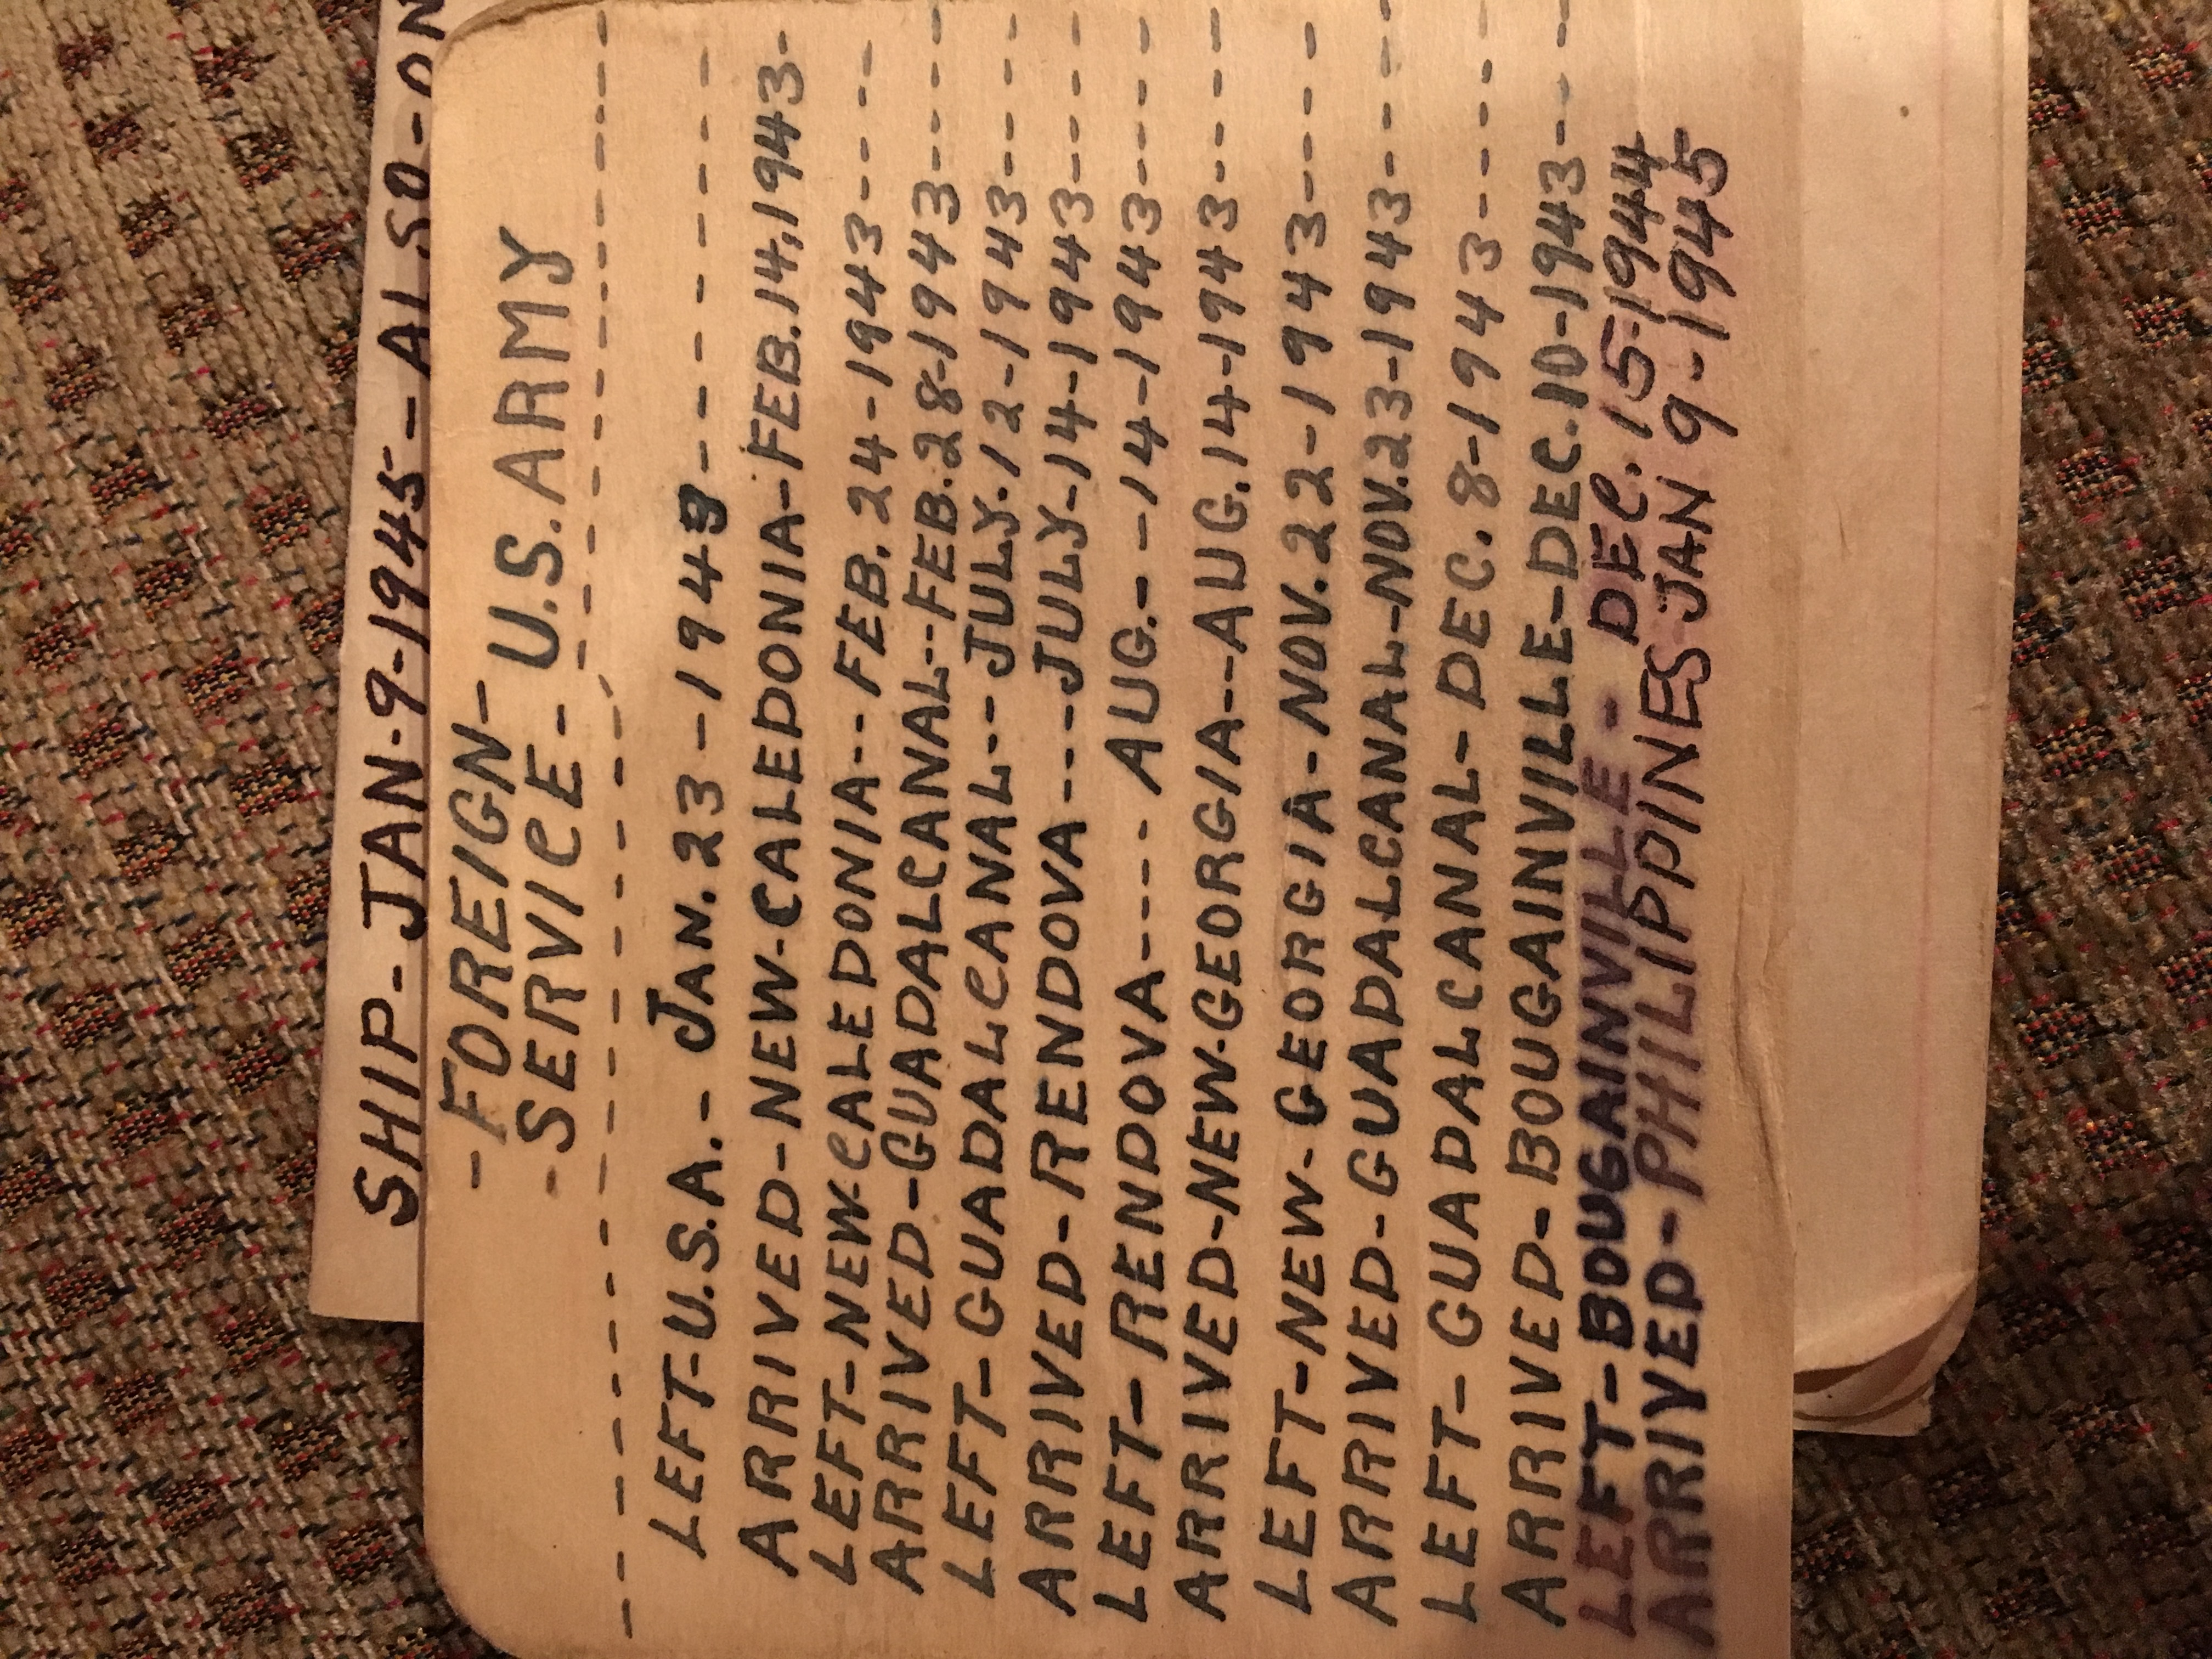 SHIP-JAN-9-1945-ALSO-ON
-FOREIGN-
-SERVICE- U.S. ARMY
LEFT-U.S.A.- JAN. 23-1943----------
ARRIVED-NEW-CALEDONIA-FEB.14,1943-
LEFT-NEW-CALEDONIA--FEB. 24-1943----
ARRIVED-GUADALCANAL--FEB.28-1943----
LEFT-GUADALCANAL--JULY.12-1943----
ARRIVED-RENDOVA---JULY-14-1943----
LEFT-RENDOVA---- AUG.--14-1943----
ARRIVED-NEW-GEORGIA--AUG.14-1943----
LEFT-NEW-GEORGIA-NOV.22-1943----
ARRIVED-GUADALCANAL-NOV.23-1943----
LEFT-GUADALCANAL-DEC. 8-1943-----
ARRIVED-BOUGAINVILLE-DEC.10-1943----
LEFT-BOUGAINVILLE- DEC. 15-1944
ARRIVED-PHILIPPINES JAN 9-1945